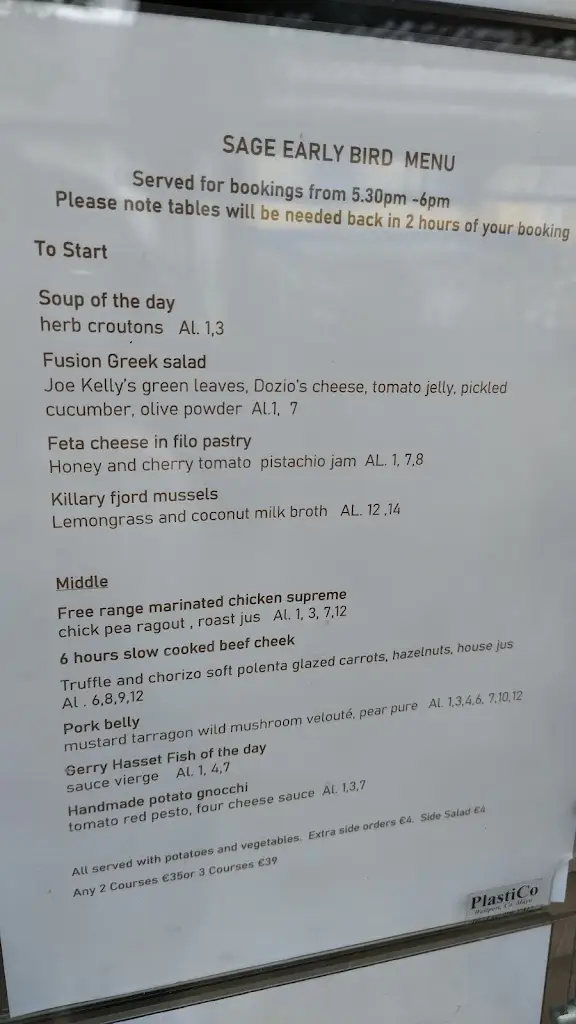 SAGE EARLY BIRD MENU
Served for bookings from 5.30pm -6pm
Please note tables will be needed back in 2 hours of your booking
To Start
Soup of the day
herb croutons Al. 1,3
Fusion Greek salad
Joe Kelly's green leaves, Dozio's cheese, tomato jelly, pickled
cucumber, olive powder Al.1, 7
Feta cheese in filo pastry
Honey and cherry tomato pistachio jam AL. 1, 7,8
Killary fjord mussels
Lemongrass and coconut milk broth AL. 12 ,14
Middle
Free range marinated chicken supreme
chick pea ragout , roast jus Al. 1, 3, 7,12
6 hours slow cooked beef cheek
Truffle and chorizo soft polenta glazed carrots, hazelnuts, house jus
Al . 6,8,9,12
Pork belly
mustard tarragon wild mushroom velouté, pear pure Al. 1,3,4,6, 7,10,12
Gerry Hasset Fish of the day
sauce vierge Al. 1, 4,7
Handmade potato gnocchi
tomato red pesto, four cheese sauce Al. 1,3,7
All served with potatoes and vegetables. Extra side orders €4. Side Salad €4
Any 2 Courses €35or 3 Courses €39
PlastiCo
Westport, Co. Mayo